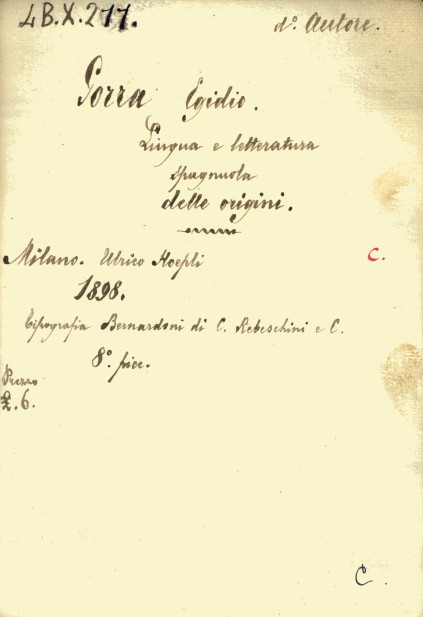 4 B.X.277.
d.º Autore.
Gorra Egidio.
Lingua e letteratura
spagnuola
delle origini.
Milano. Ulrico Hoepli
C.
1898.
Tipografia Bernardoni di C. Rebeschini e C.
8º. picc.
Prezzo
£.6.
C.